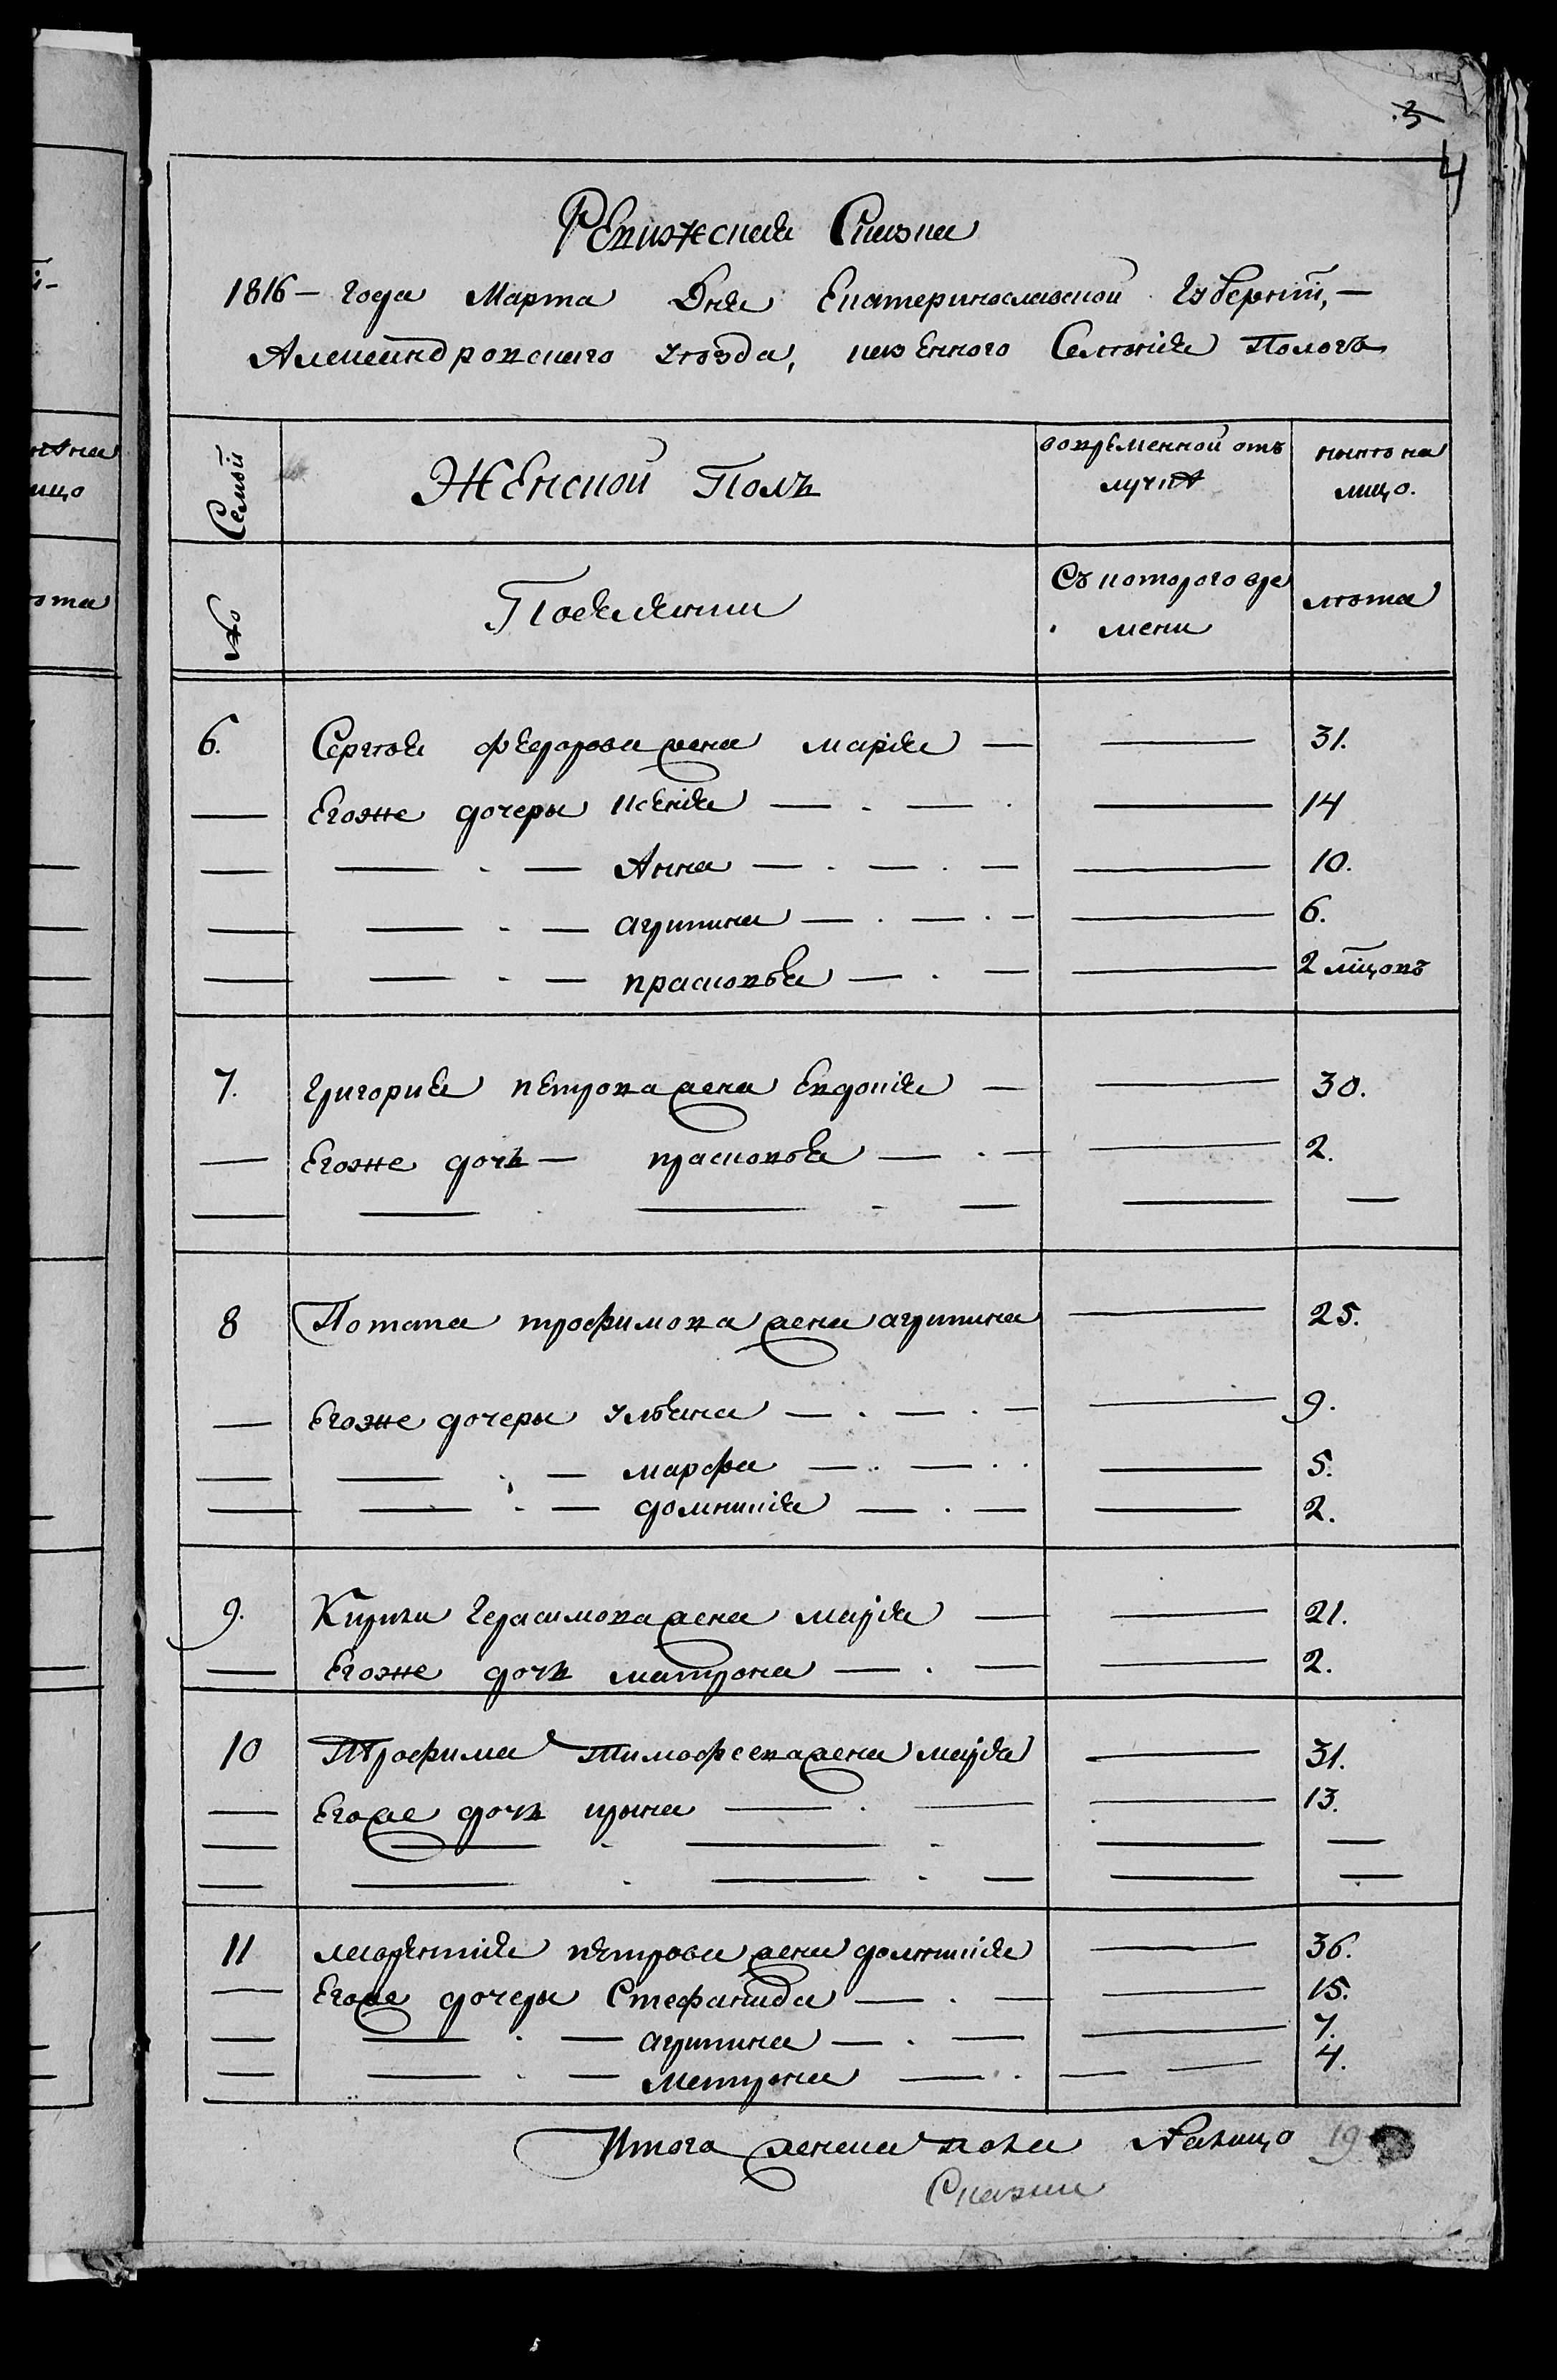 3
4
Ревизская Сказка
1816 – года Марта Дня Екатеринославской Губернии, –
Александровского уѣзда, казенного Селенія Пологъ
Семьи
Женской Полъ
вовременной отъ
лучкѣ
нынѣ на
лицо.
№
Поселянки
Съ которого вре
мени
лѣта
6. Сергѣя Федорова жена марія — — 31.
— Егоже дочеры ксенія — . — . — 14
— — . — Анна — . — . — — 10.
— — . — агрипина — . — . — — 6.
— — . — прасковья — . — — 2 мѣцовъ
7. Григорія петрова жена Евдокія — — 30.
— Егоже дочь — прасковья — . — — 2.
— — . — . — — —
8 Потапа трофимова жена агрипина — 25.
— Егоже дочеры ульяна — . — . — — 9.
— — . — марфа — . — . . — 5.
— — . — домникія — . — — 2.
9. Кирила Герасимова жена марія — — 21.
— Егоже дочь матрона — . — — 2.
10 Трофима Тимофеева жена марія — 31.
— Егоже дочь ирына — . — — 13.
— — . — . — —
— — . — . — — —
11 петрова жена домникія — 36.
— Егоже дочеры Стефанида — . — — 15.
— — . — агрипина — . — — 7.
— — . — матрона — . — — 4.
Итого женска пола налицо 19
Сказки